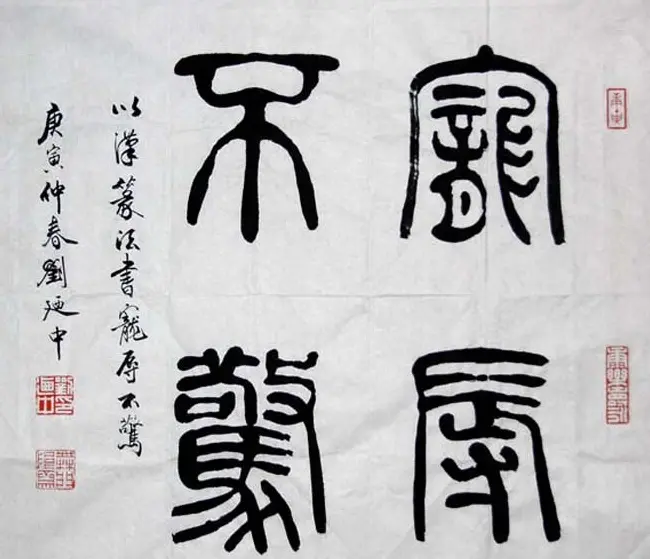 寵辱
不驚
以漢篆法書寵辱不驚
庚寅仲春劉迺中